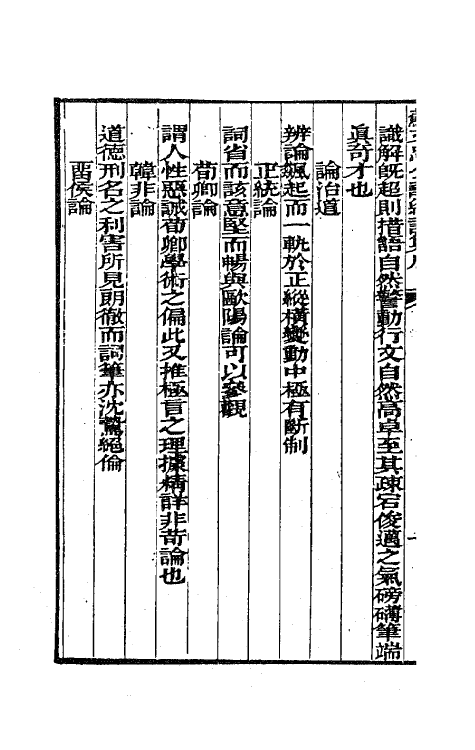 識解既超則措語自然警動行文自然高卓至其疎宕俊邁之氣磅礴筆端
眞奇才也
論治道
辨論飆起而一軌於正縱橫變動中極有斷制
正統論
詞省而該意堅而暢與歐陽論可以參觀
荀卿論
謂人性惡誠荀卿學術之偏此又推極言之理據精詳非苛論也
韓非論
道德刑名之利害所見朗徹而詞筆亦沈驚絕倫
留侯論